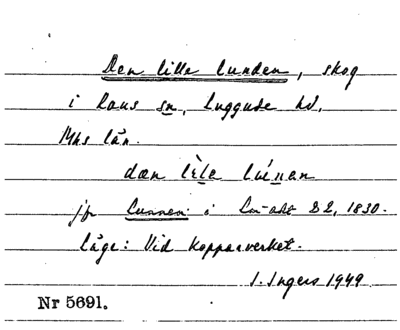 Den lille lunden, skog
i Raus sn, Luggude hd,
Mhs län.
dæn lèle lúnen
jfr Lunnen i Lm-akt B2, 1830.
läge: Vid kopparverket.
I. Ingers 1949
Nr 5691.